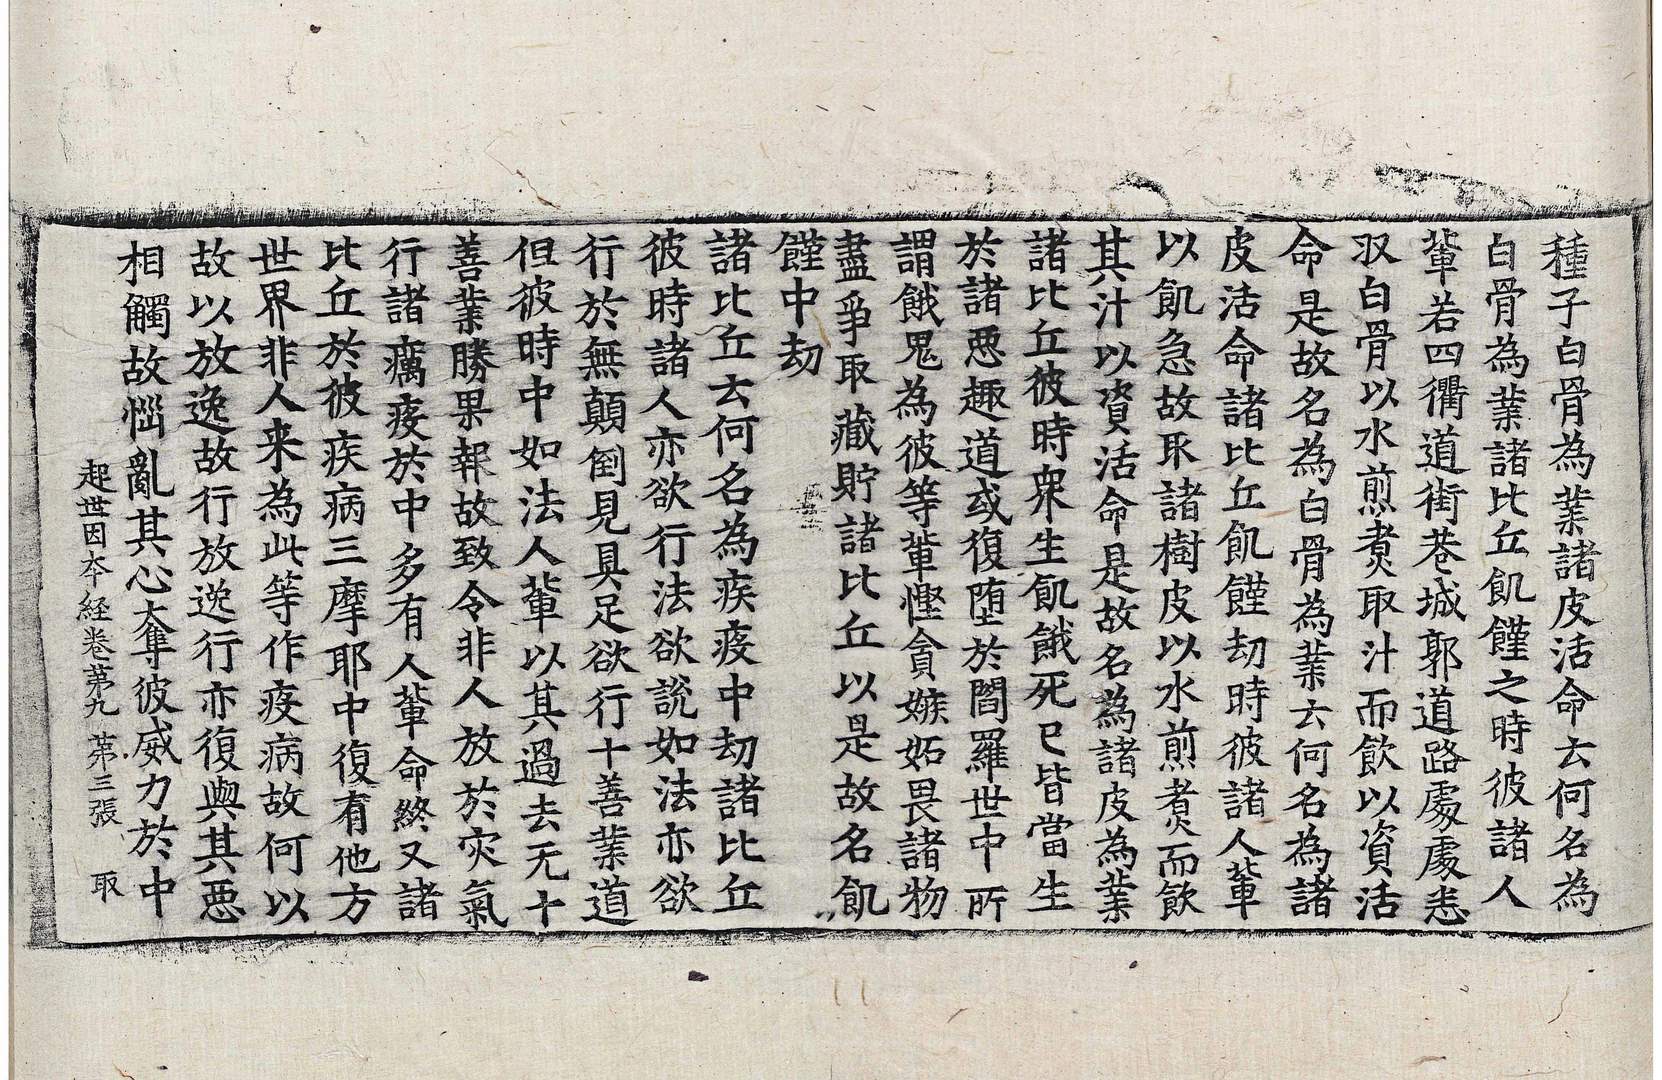 種子白骨為業諸皮活命云何名為
白骨為業諸比丘飢饉之時彼諸人
輩若四衢道街巷城郭道路處處悉
収白骨以水煎煑取汁而飲以資活
命是故名為白骨為業云何名為諸
皮活命諸比丘飢饉劫時彼諸人輩
以飢急故取諸樹皮以水煎煑而飲
其汁以資活命是故名為諸皮為業
諸比丘彼時衆生飢餓死已皆當生
於諸惡趣道或復堕於閻羅世中所
謂餓鬼為彼等輩慳貪嫉妬畏諸物
盡爭取藏貯諸比丘以是故名飢
饉中劫
諸比丘云何名為疾疫中劫諸比丘
彼時諸人亦欲行法欲說如法亦欲
行於無顛倒見具足欲行十善業道
但彼時中如法人輩以其過去无十
善業勝果報故致令非人放於灾氣
行諸癘疫於中多有人輩命終又諸
比丘於彼疾病三摩耶中復有他方
世界非人来為此等作疫病故何以
故以放逸故行放逸行亦復與其惡
相觸故惱亂其心奪彼威力於中
起世因夲經卷第九 第三張 取